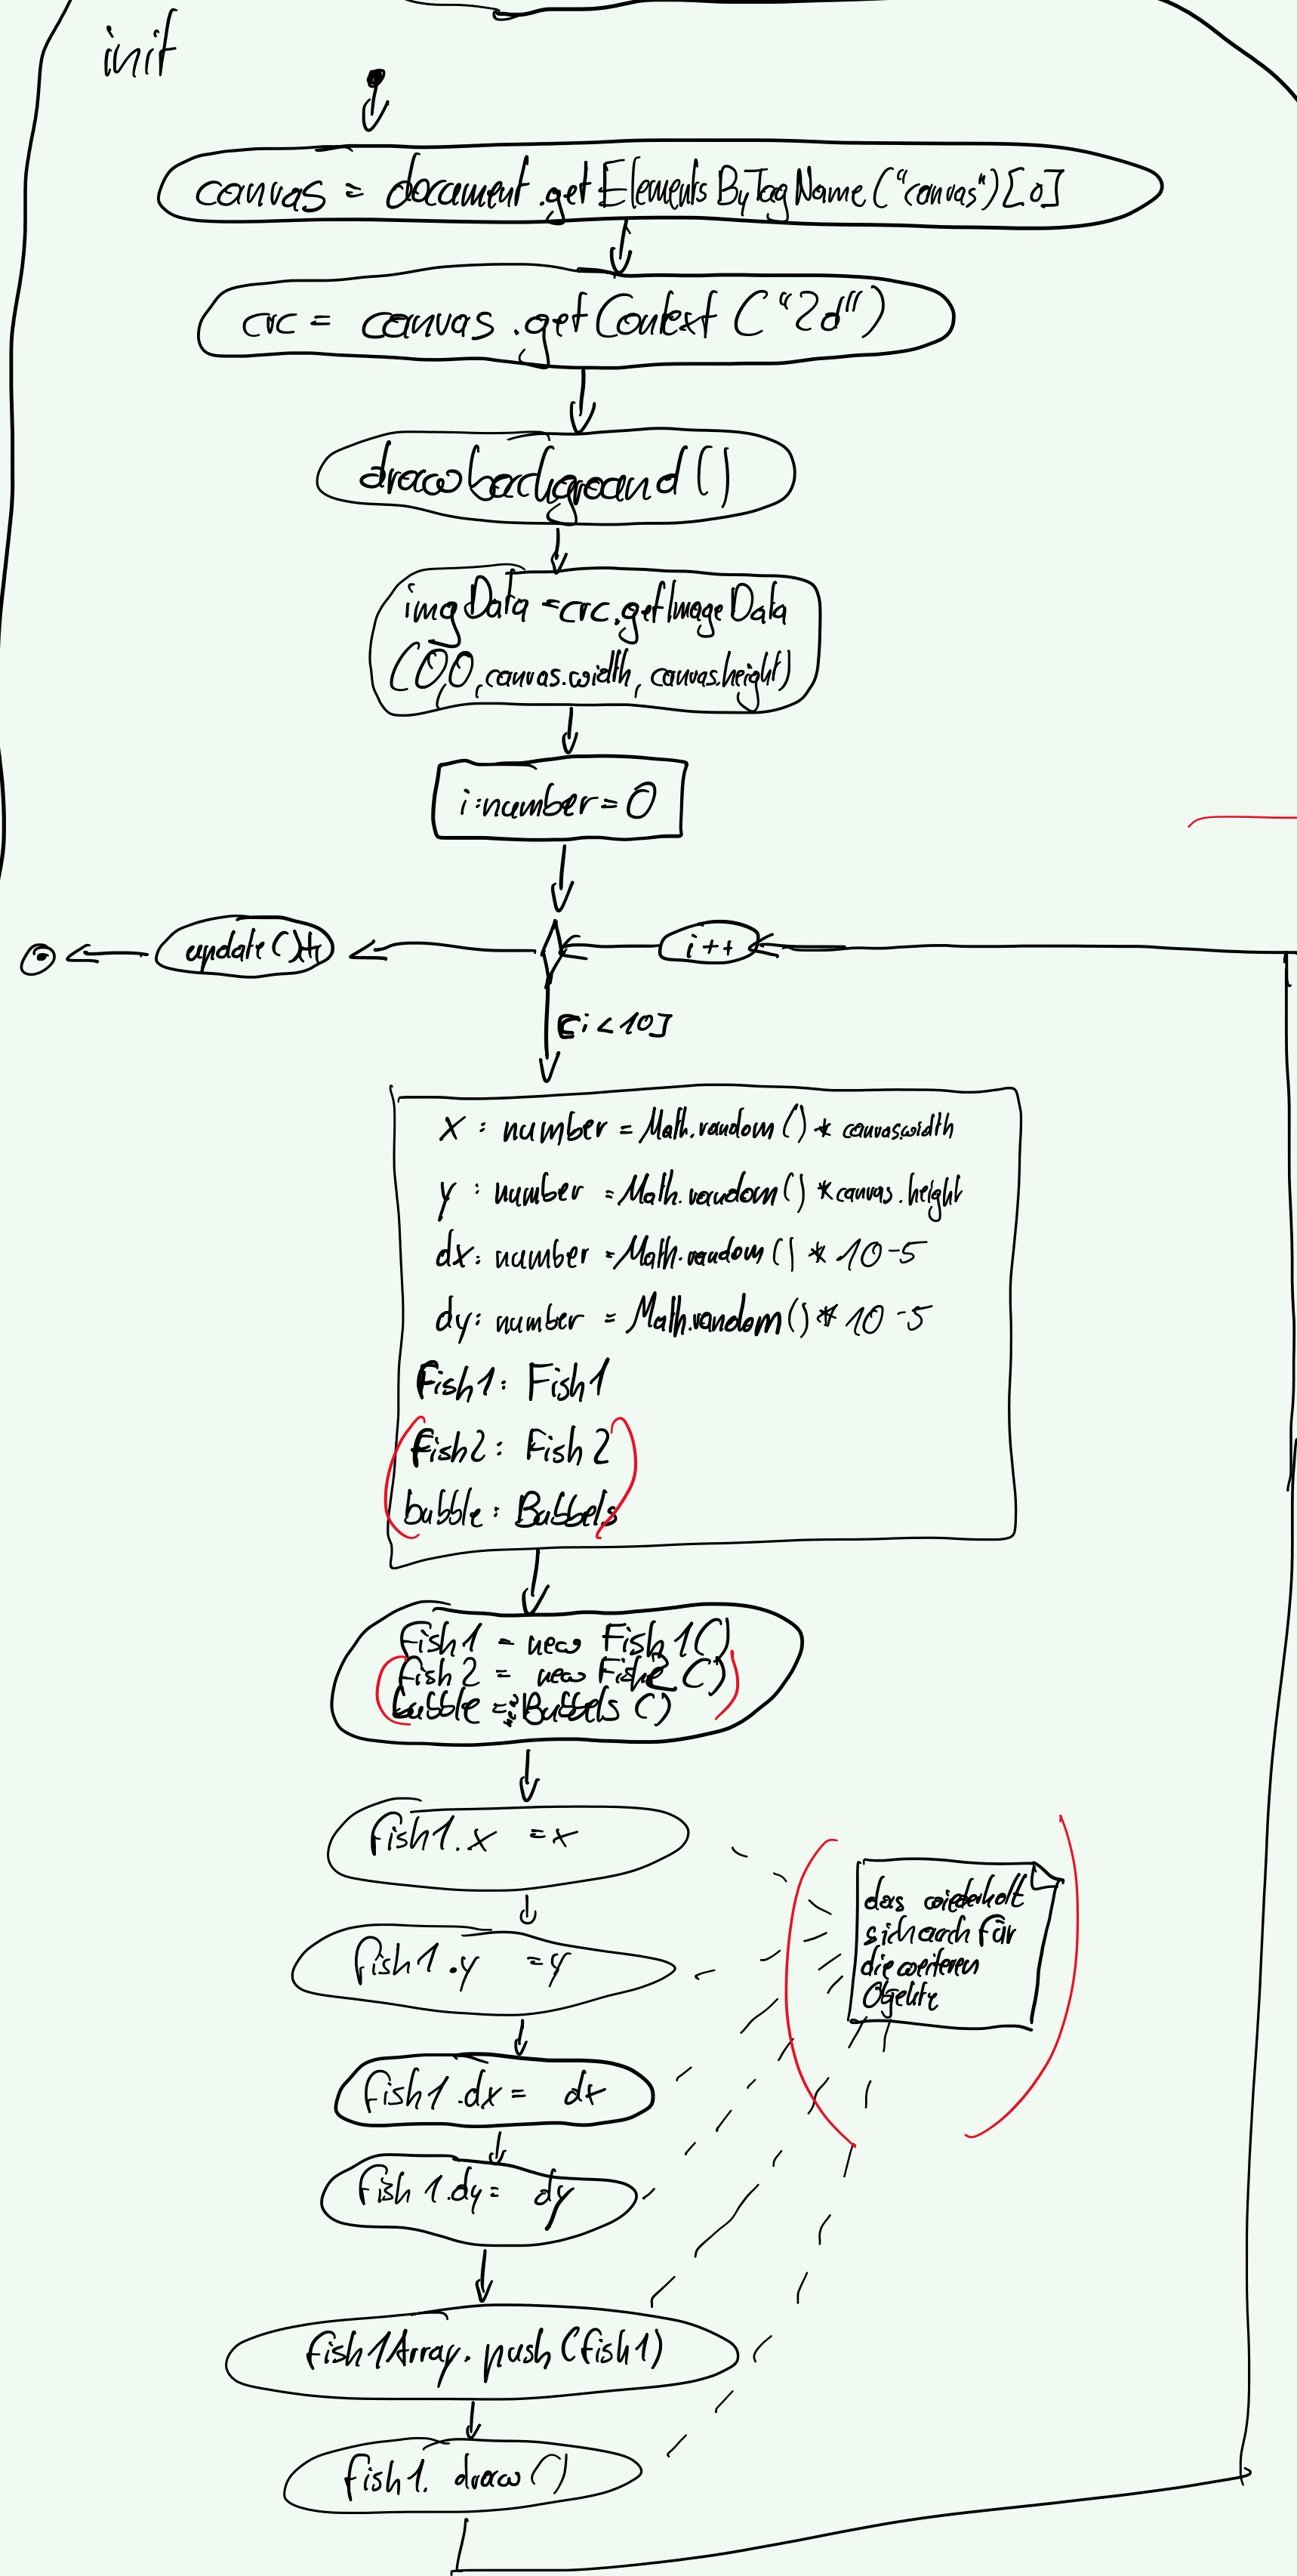 init
canvas = document.getElementsByTagName("canvas")[0]
crc = canvas.getContext("2d")
drawbackground()
imgData = crc.getImageData
(0,0,canvas.width, canvas.height)
i:number = 0
update()
i++
[i < 10]
x : number = Math.random() * canvas.width
y : number = Math.random() * canvas.height
dx: number = Math.random() * 10 - 5
dy: number = Math.random() * 10 - 5
fish1: Fish1
fish2: Fish2
bubble: Bubbels
fish1 = new Fish1()
fish2 = new Fish2()
bubble = Bubbels()
fish1.x = x
das wiederholt
sich auch für
die weiteren
Objekte
fish1.y = y
fish1.dx = dx
fish1.dy = dy
fish1Array.push(fish1)
fish1.draw()